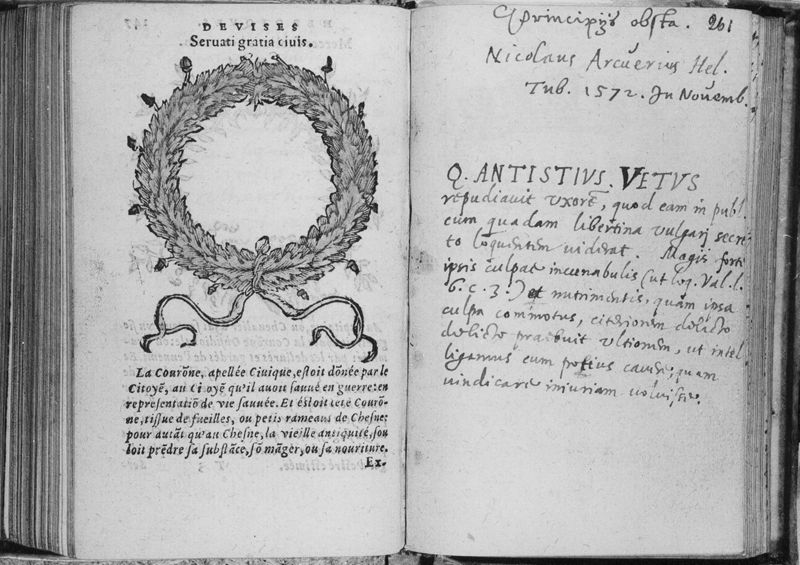 DEVISES
Seruati gratia ciuis.
La Courõne, apellée Ciuique, estoit dõnée par le
Citoyẽ, au Citoyẽ qu'il auoit sauué en guerre: en
representatiõ de vie sauuée. Et estoit cete Courõ-
ne, tissue de fueilles, ou petis rameaus de Chesne:
pour autãt qu'au Chesne, la vieille antiquité, sou
loit prẽdre sa substãce, sõ mãger, ou sa nouriture.
Ex-
Principijs obsta. 261
Nicolaus Arcuerius Hel.
Tub. 1572. In Nouemb.
Q. ANTISTIVS. VETVS
repudiauit vxorẽ, quod eam in publ.
cum quadam libertina vulgarj secre
to loquentem viderat. Magis forte
ipsis culpae incunabulis (ut loq. Val. l.
6. c. 3.) et nutrimentis, quam ipsa
culpa commotus, citeriorem delicto
delicto praebuit vltionem, ut intel
ligamus eum potius cauere, quam
vindicare iniuriam voluisse.